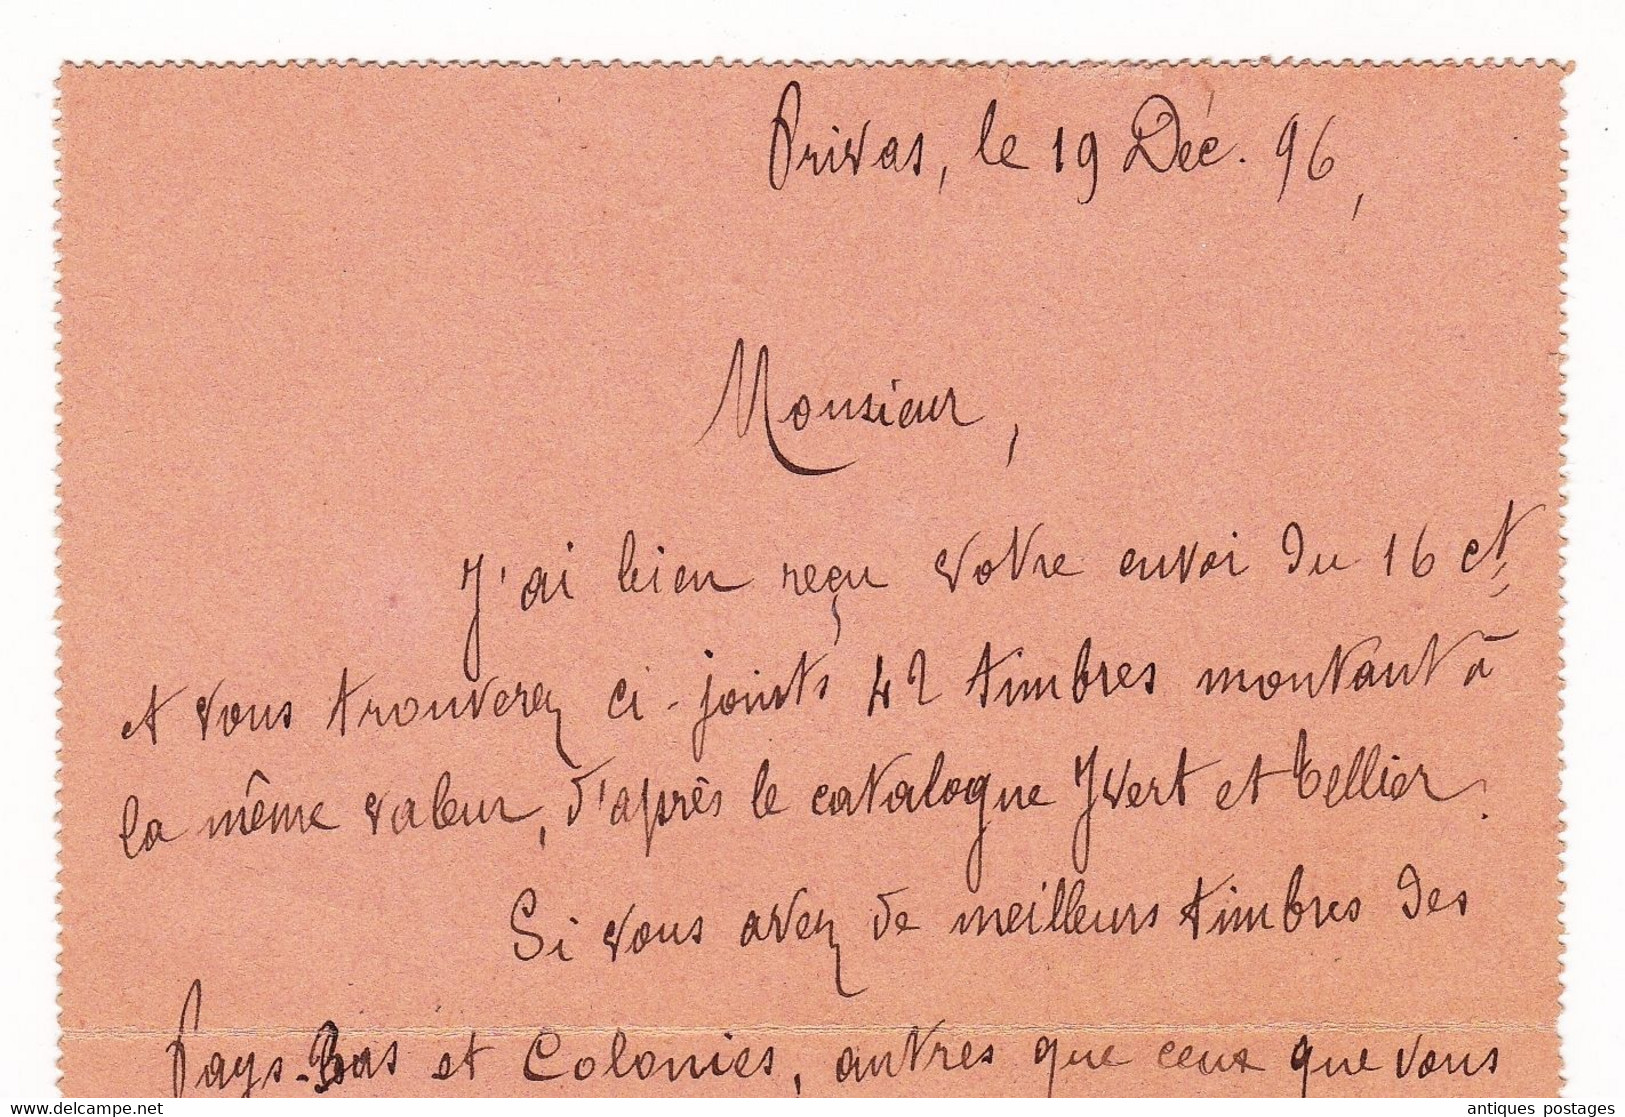 Privas, le 19 Déc. 96,
Monsieur,
J'ai bien reçu votre envoi du 16 ct,
et vous trouverez ci-joints 42 timbres montant à
la même valeur, d'après le catalogue Yvert et Tellier.
Si vous avez de meilleurs timbres des
Pays-Bas et Colonies, autres que ceux que vous
antiques postages